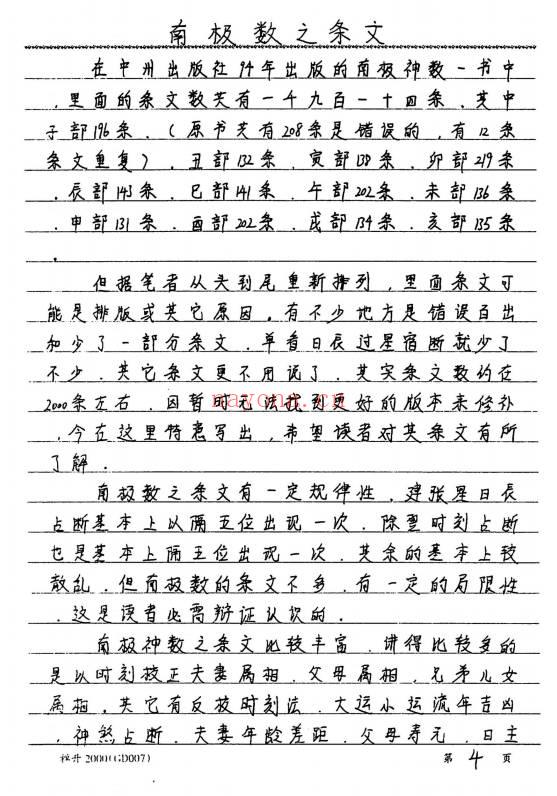 南极数之条文
在中州出版社94年出版的南极神数一书中
，里面的条文数共有一千九百一十四条．其中
子部196条．（原书共有208条是错误的，有12条
条文重复）．丑部132条．寅部138条．卯部219条
．辰部143条．巳部141条．午部202条．未部136条
．申部131条．酉部202条．戌部134条．亥部135条
．
但据笔者从头到尾重新排列，里面条文可
能是排版或其它原因。有不少地方是错误百出
和少了一部分条文．单看日辰过星宿断就少了
不少．其它条文更不用说了．其实条文数约在
2000条左右．因暂时无法找到更好的版本来修补
．今在这里特意写出，希望读者对其条文有所
了解．
南极数之条文有一定规律性．建张星日辰
占断基本上以隔五位出现一次．除里时刻占断
也是基本上隔五位出现一次．其余的基本上较
散乱．但南极数的条文不多．有一定的局限性
．这是读者必需辩证认识的．
南极神数之条文比较丰富．讲得比较多的
是以时刻校正夫妻属相．父母属相．兄弟儿女
属相．其它有反校时刻法．大运小运流年吉凶
．神煞占断．夫妻年龄差距．父母寿元．日主
2000(GD007)
第 4 页
nayona.cn